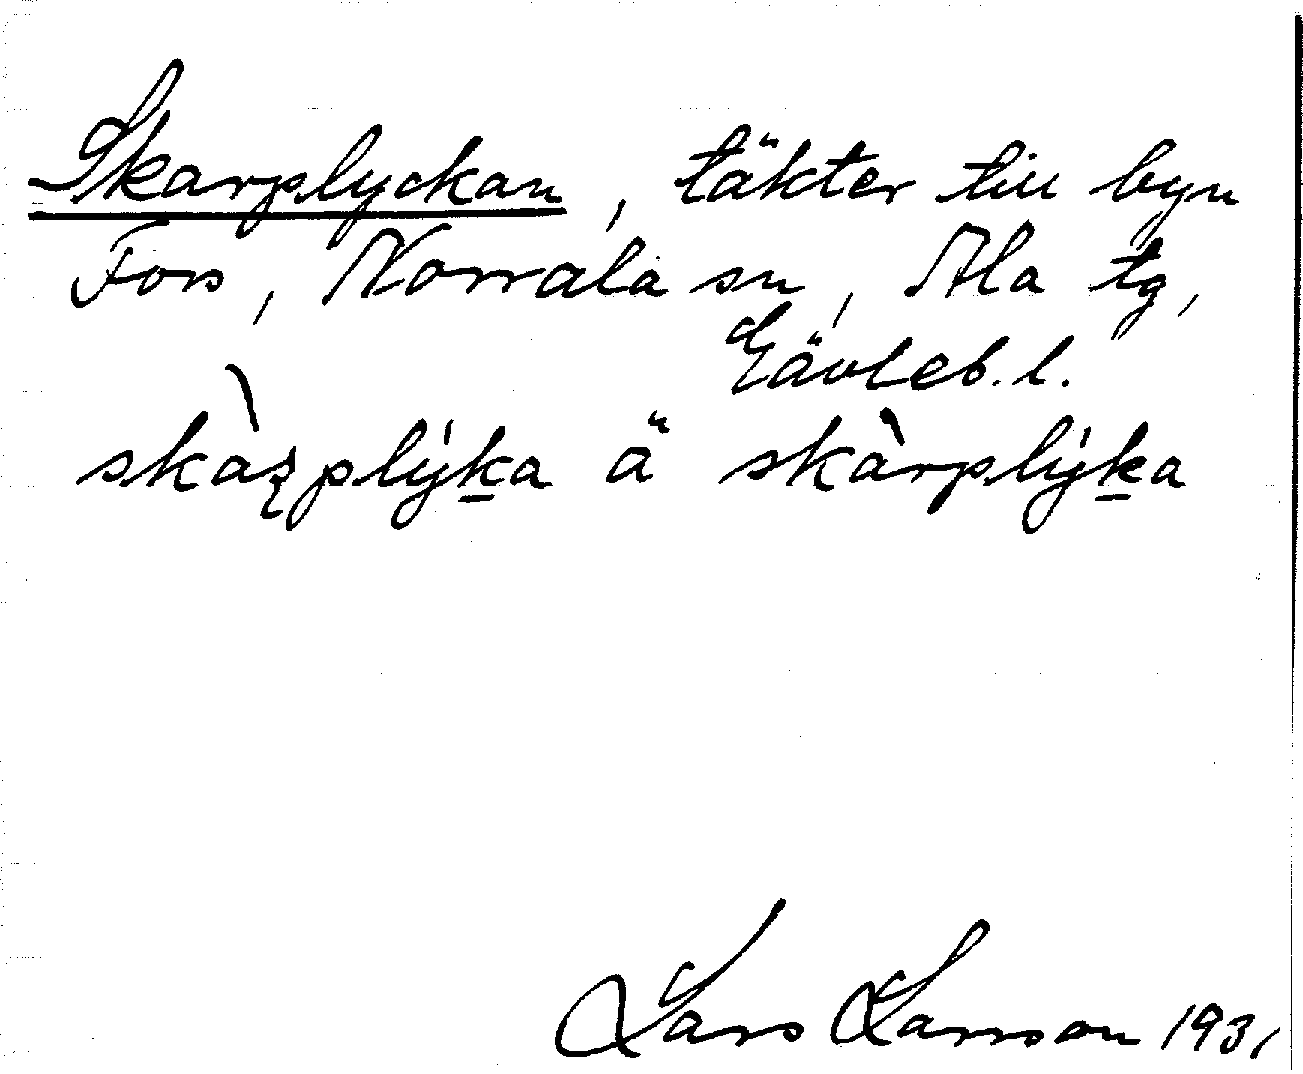 Skarplyckan, täkter till byn
Fors, Norrala sn, Ala tg,
Gävleb. l.
skàrplýka ä skàrplýka
Lars Larsson 1931